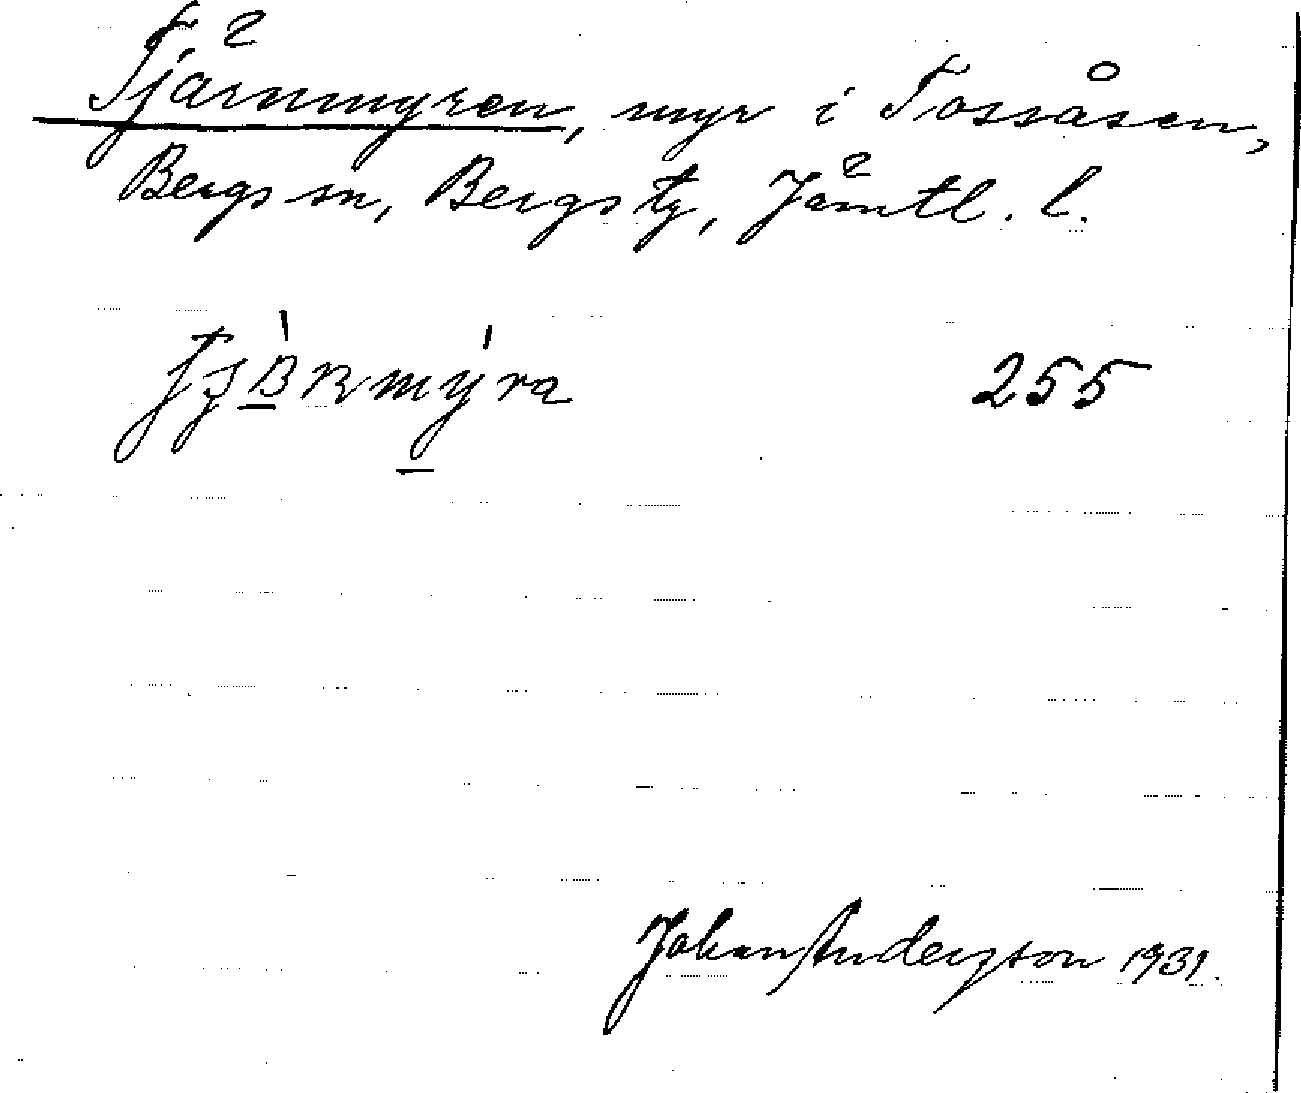 Tjärnmyren, myr i Tossåsen,
Bergs sn, Bergs tg, Jämtl. l.
255
Johan Anderzson 1931.